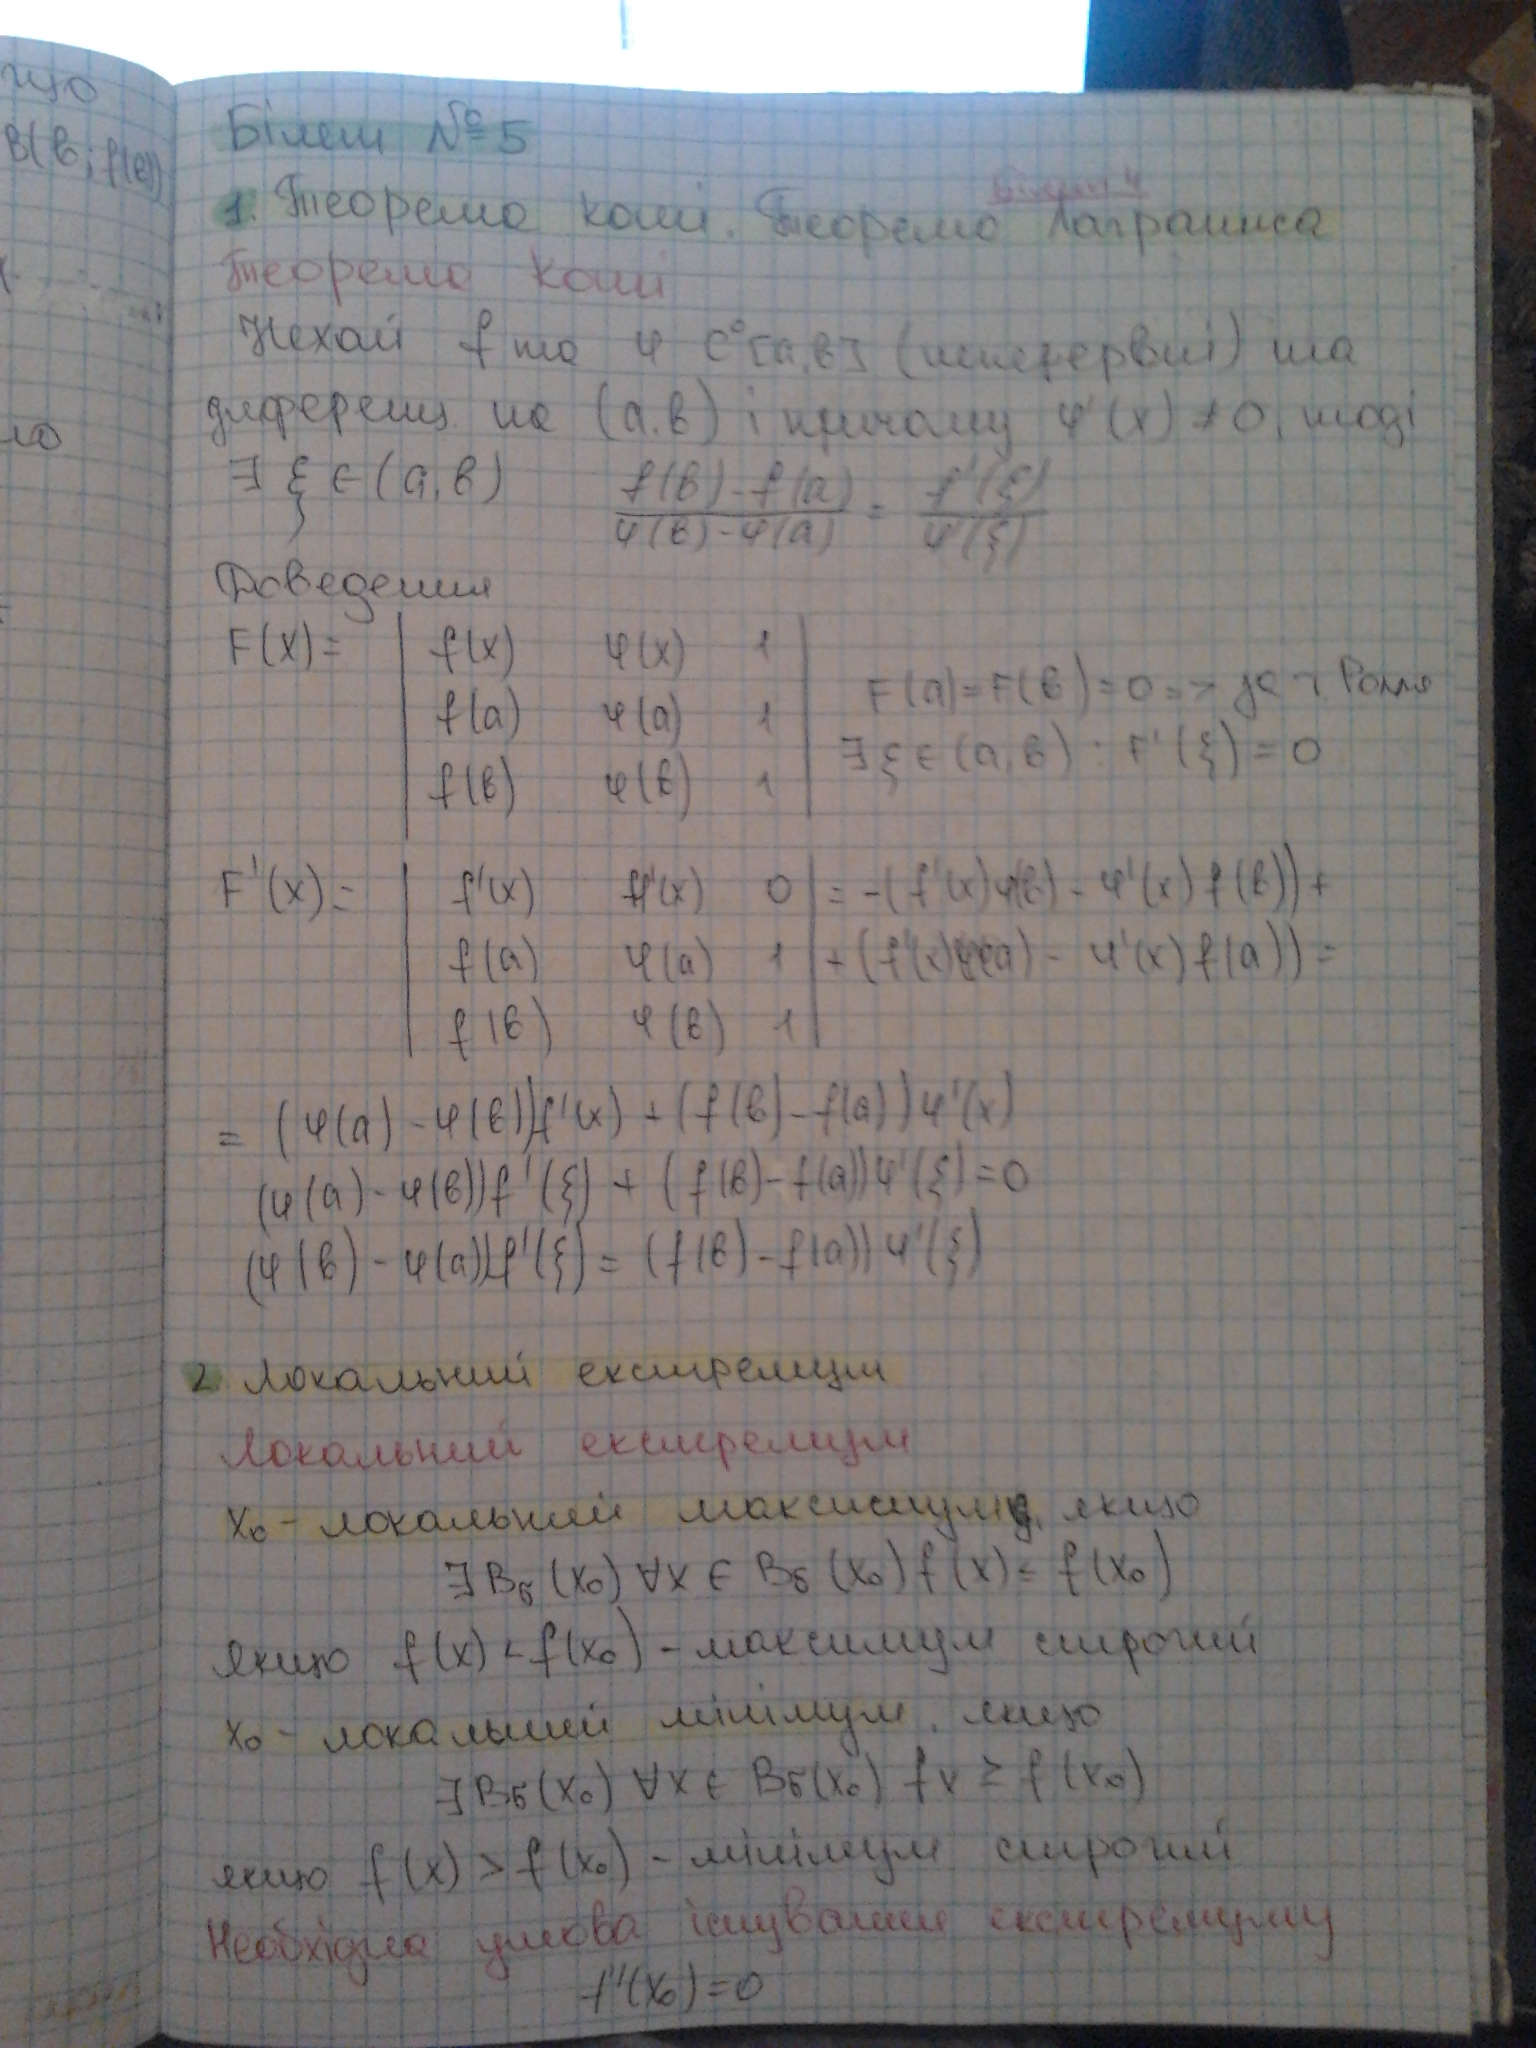 що
B(в; f(в))
ло
Білет № 5
Білет 4
1. Теорема Коші. Теорема Лагранжа
Теорема Коші
Нехай f та φ C⁰[a,в] (неперервні) та
диференц. на (a.в) і причому φ'(x) ≠ 0, тоді
∃ ξ ∈ (a,в) (f(в) - f(a))/(φ(в) - φ(a)) = f'(ξ)/φ'(ξ)
Доведення
F(x) = | f(x) φ(x) 1 |
| f(a) φ(a) 1 | F(a) = F(в) = 0 => за т. Ролля
| f(в) φ(в) 1 | ∃ ξ ∈ (a,в) : F'(ξ) = 0
F'(x) = | f'(x) φ'(x) 0 | = -(f'(x)φ(в) - φ'(x) f(в)) +
| f(a) φ(a) 1 | + (f'(x)φ(a) - φ'(x) f(a)) =
| f(в) φ(в) 1 |
= (φ(a) - φ(в))f'(x) + (f(в) - f(a))φ'(x)
(φ(a) - φ(в))f'(ξ) + (f(в) - f(a))φ'(ξ) = 0
(φ(в) - φ(a))f'(ξ) = (f(в) - f(a))φ'(ξ)
2. Локальний екстремум
Локальний екстремум
x₀ - локальний максимум, якщо
∃ Bδ(x₀) ∀x ∈ Bδ(x₀) f(x) ≤ f(x₀)
якщо f(x) < f(x₀) - максимум строгий
x₀ - локальний мінімум, якщо
∃ Bδ(x₀) ∀x ∈ Bδ(x₀) fx ≥ f(x₀)
якщо f(x) > f(x₀) - мінімум строгий
Необхідна умова існування екстремуму
f'(x₀) = 0